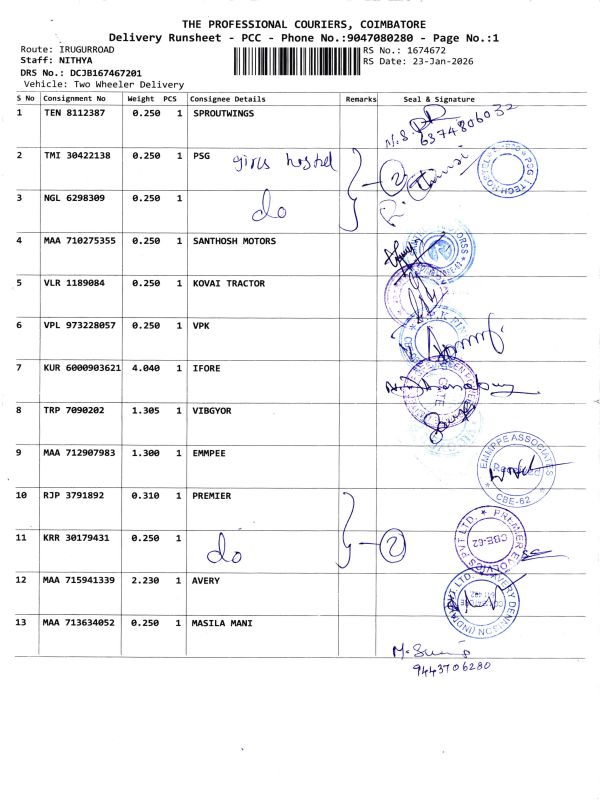 THE PROFESSIONAL COURIERS, COIMBATORE
Delivery Runsheet - PCC - Phone No.:9047080280 - Page No.:1
Route: IRUGURROAD
RS No.: 1674672
Staff: NITHYA
RS Date: 23-Jan-2026
DRS No.: DCJB167467201
Vehicle: Two Wheeler Delivery
S No Consignment No Weight PCS Consignee Details Remarks Seal & Signature
1 TEN 8112387 0.250 1 SPROUTWINGS
6374806032
2 TMI 30422138 0.250 1 PSG girls hostel
2
3 NGL 6298309 0.250 1 do
4 MAA 710275355 0.250 1 SANTHOSH MOTORS
5 VLR 1189084 0.250 1 KOVAI TRACTOR
6 VPL 973228057 0.250 1 VPK
7 KUR 6000903621 4.040 1 IFORE
8 TRP 7090202 1.305 1 VIBGYOR
9 MAA 712907983 1.300 1 EMMPEE
EMMPPE ASSOCIATES
CBE-62
10 RJP 3791892 0.310 1 PREMIER
11 KRR 30179431 0.250 1 do 2
CBE-62
12 MAA 715941339 2.230 1 AVERY
13 MAA 713634052 0.250 1 MASILA MANI
9443706280